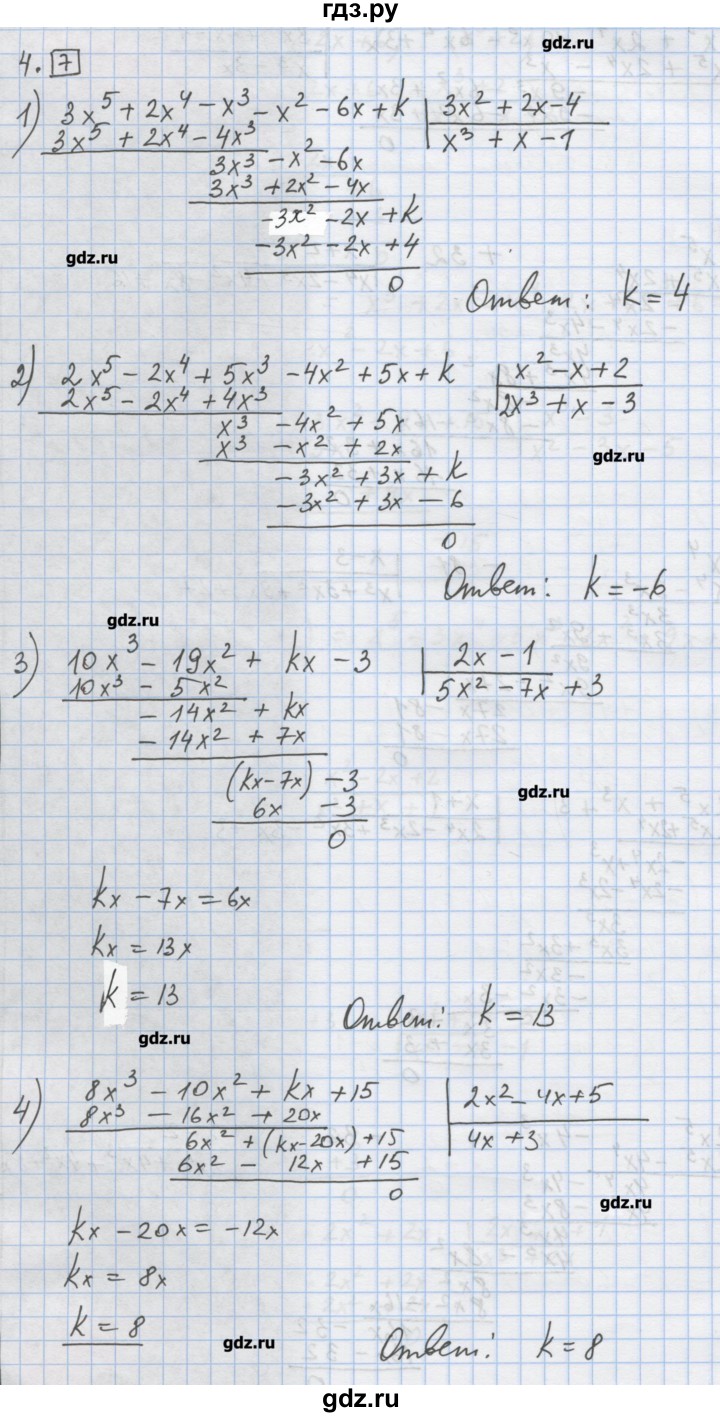 гдз.ру
gdz.ru
4. 7
1) 3x⁵ + 2x⁴ - x³ - x² - 6x + k | 3x² + 2x - 4
3x⁵ + 2x⁴ - 4x³ | x³ + x - 1
3x³ - x² - 6x
3x³ + 2x² - 4x
-3x² - 2x + k
-3x² - 2x + 4
gdz.ru
0
Ответ: k = 4
2) 2x⁵ - 2x⁴ + 5x³ - 4x² + 5x + k | x² - x + 2
2x⁵ - 2x⁴ + 4x³ | 2x³ + x - 3
x³ - 4x² + 5x
x³ - x² + 2x
gdz.ru
-3x² + 3x + k
-3x² + 3x - 6
0
Ответ: k = -6
gdz.ru
3) 10x³ - 19x² + kx - 3 | 2x - 1
10x³ - 5x² | 5x² - 7x + 3
- 14x² + kx
- 14x² + 7x
(kx - 7x) - 3
gdz.ru
6x - 3
0
kx - 7x = 6x
kx = 13x
k = 13
Ответ: k = 13
gdz.ru
4) 8x³ - 10x² + kx + 15 | 2x² - 4x + 5
8x³ - 16x² + 20x | 4x + 3
6x² + (kx - 20x) + 15
6x² - 12x + 15
0
gdz.ru
kx - 20x = -12x
kx = 8x
k = 8
gdz.ru
Ответ: k = 8
gdz.ru